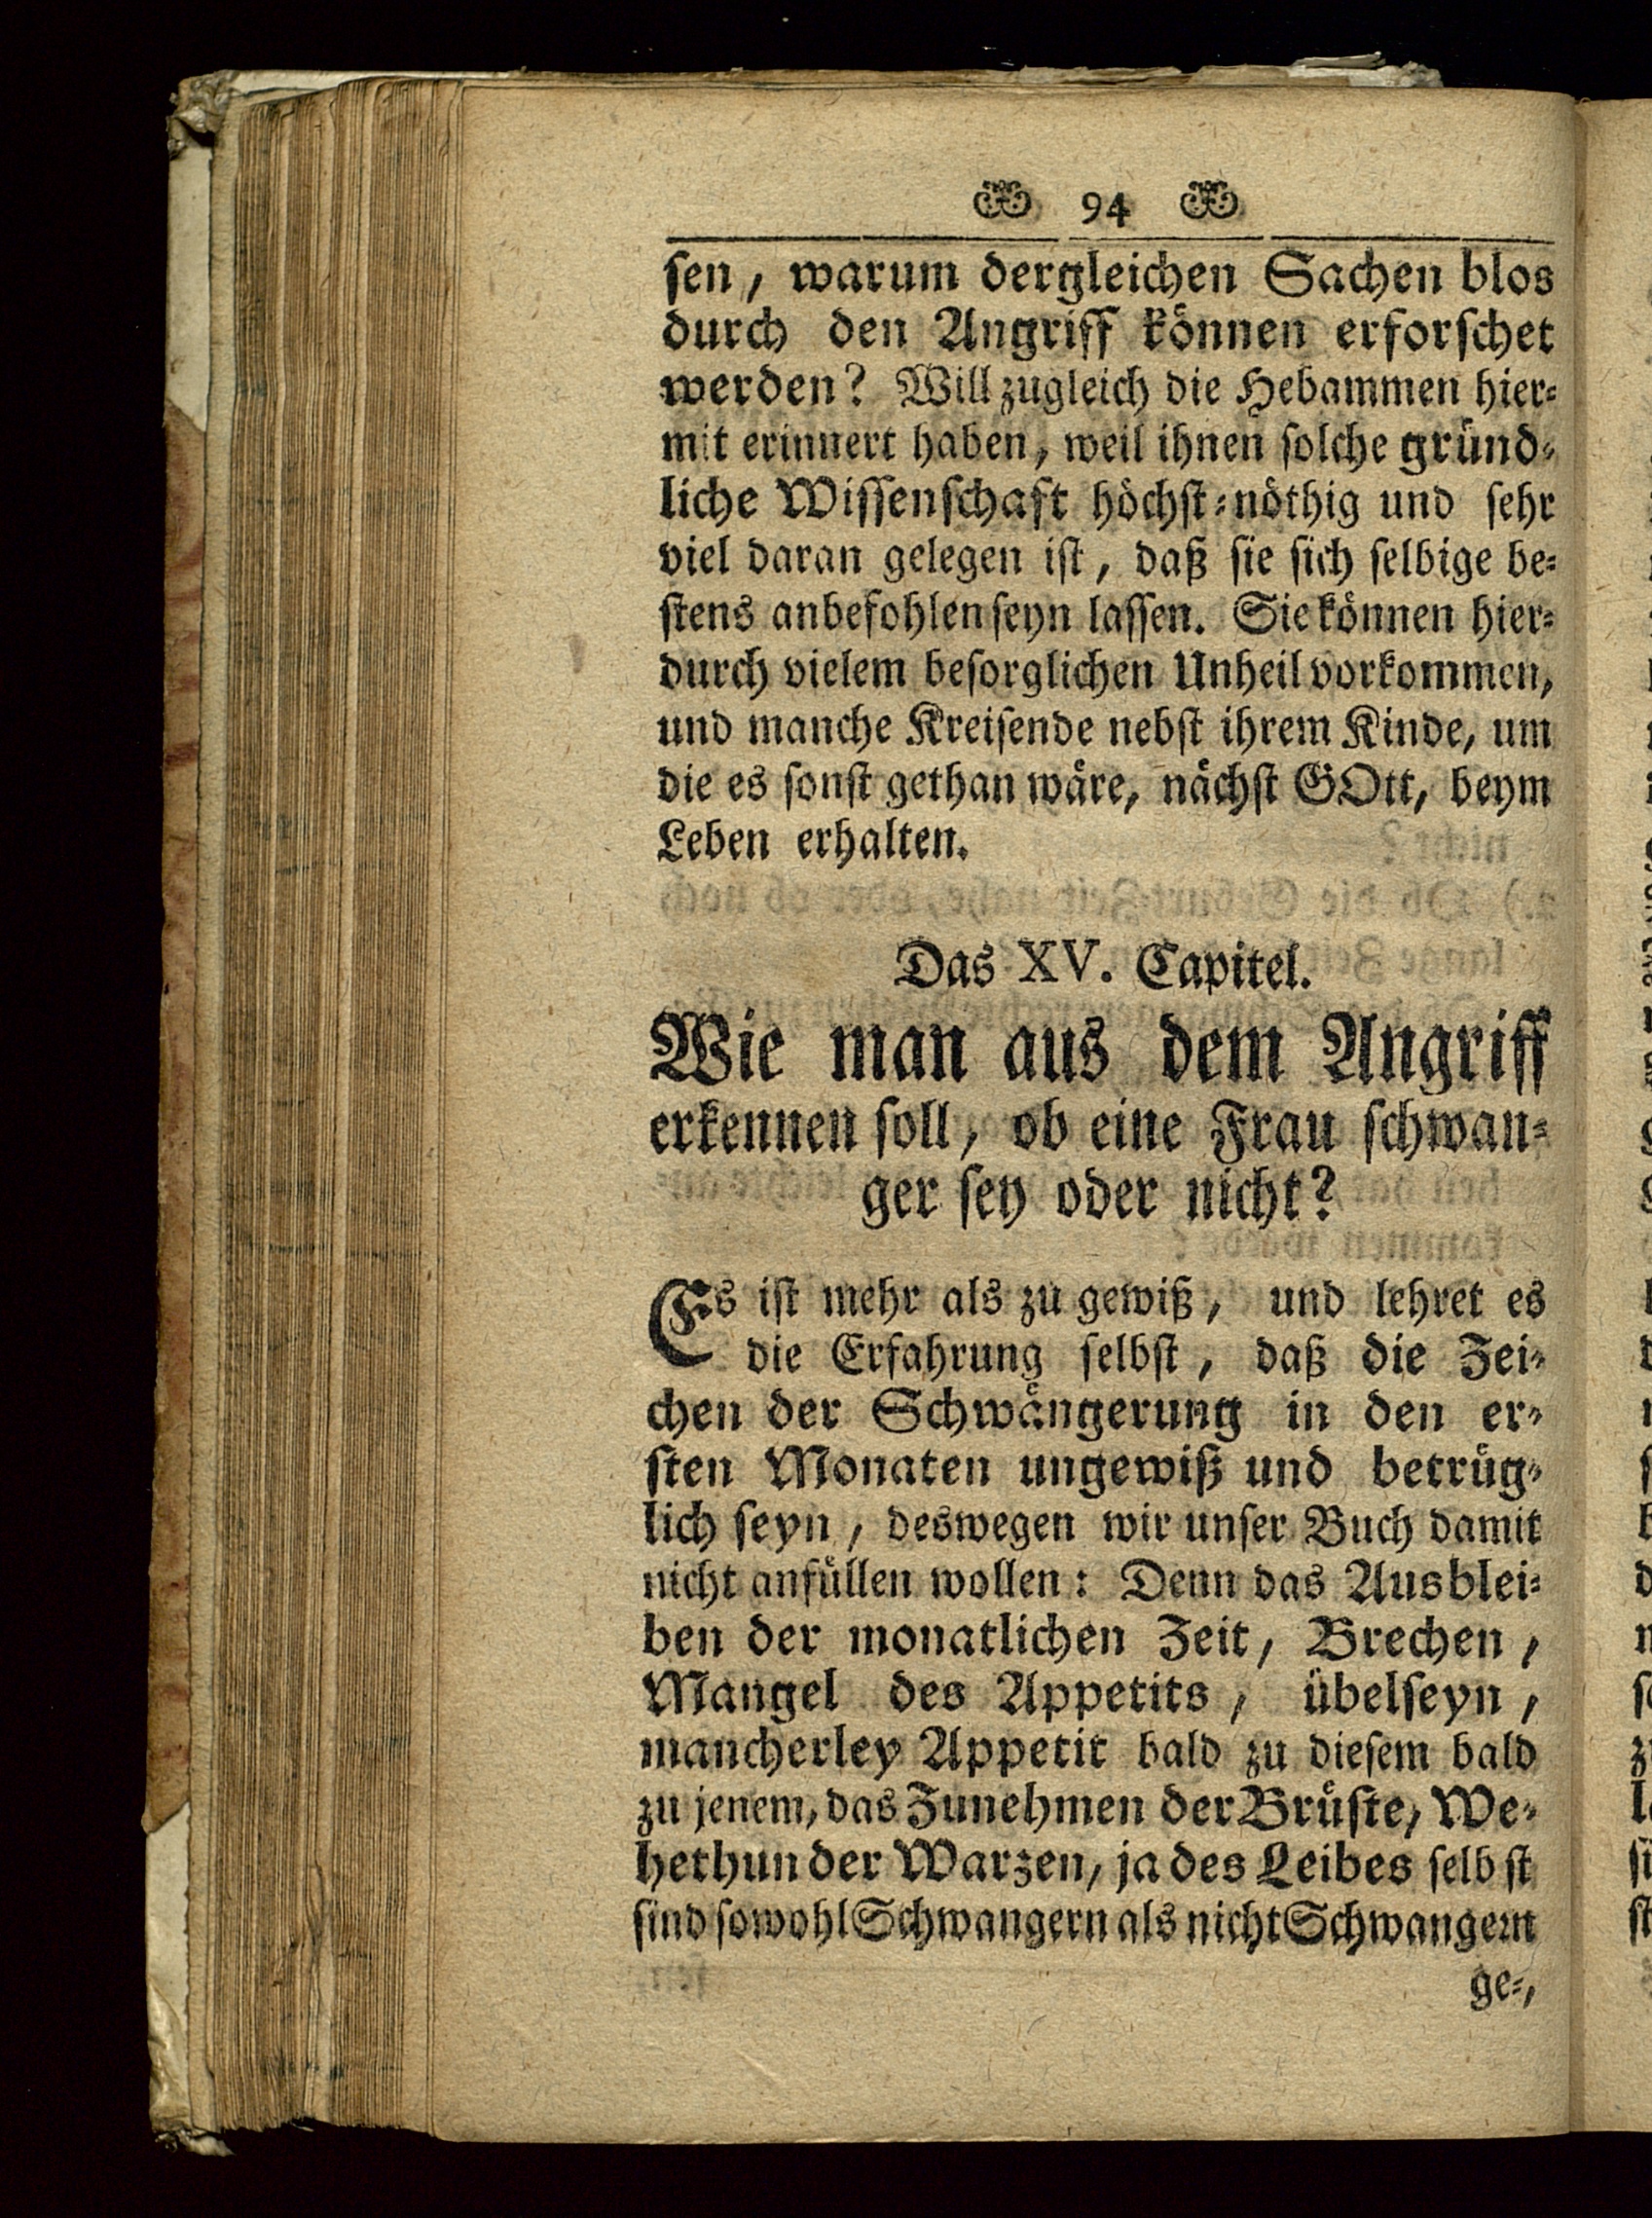 94
sen, warum dergleichen Sachen blos
durch den Angriff können erforschet
werden? Will zugleich die Hebammen hier-
mit erinnert haben, weil ihnen solche gründ-
liche Wissenschaft höchst-nöthig und sehr
viel daran gelegen ist, daß sie sich selbige be-
stens anbefohlen seyn lassen. Sie können hier-
durch vielem besorglichen Unheil vorkommen,
und manche Kreisende nebst ihrem Kinde, um
die es sonst gethan wäre, nächst GOtt, beym
Leben erhalten.
Das XV. Capitel.
Wie man aus dem Angriff
erkennen soll, ob eine Frau schwan-
ger sey oder nicht?
Es ist mehr als zu gewiß, und lehret es
die Erfahrung selbst, daß die Zei-
chen der Schwängerung in den er-
sten Monaten ungewiß und betrüg-
lich seyn, deswegen wir unser Buch damit
nicht anfüllen wollen: Denn das Ausblei-
ben der monatlichen Zeit, Brechen,
Mangel des Appetits, übelseyn,
mancherley Appetit bald zu diesem bald
zu jenem, das Zunehmen der Brüste, We-
hethun der Warzen, ja des Leibes selbst
sind sowohl Schwangern als nicht Schwangern
ge-,